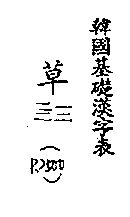 韓國基礎漢字表
草
三三